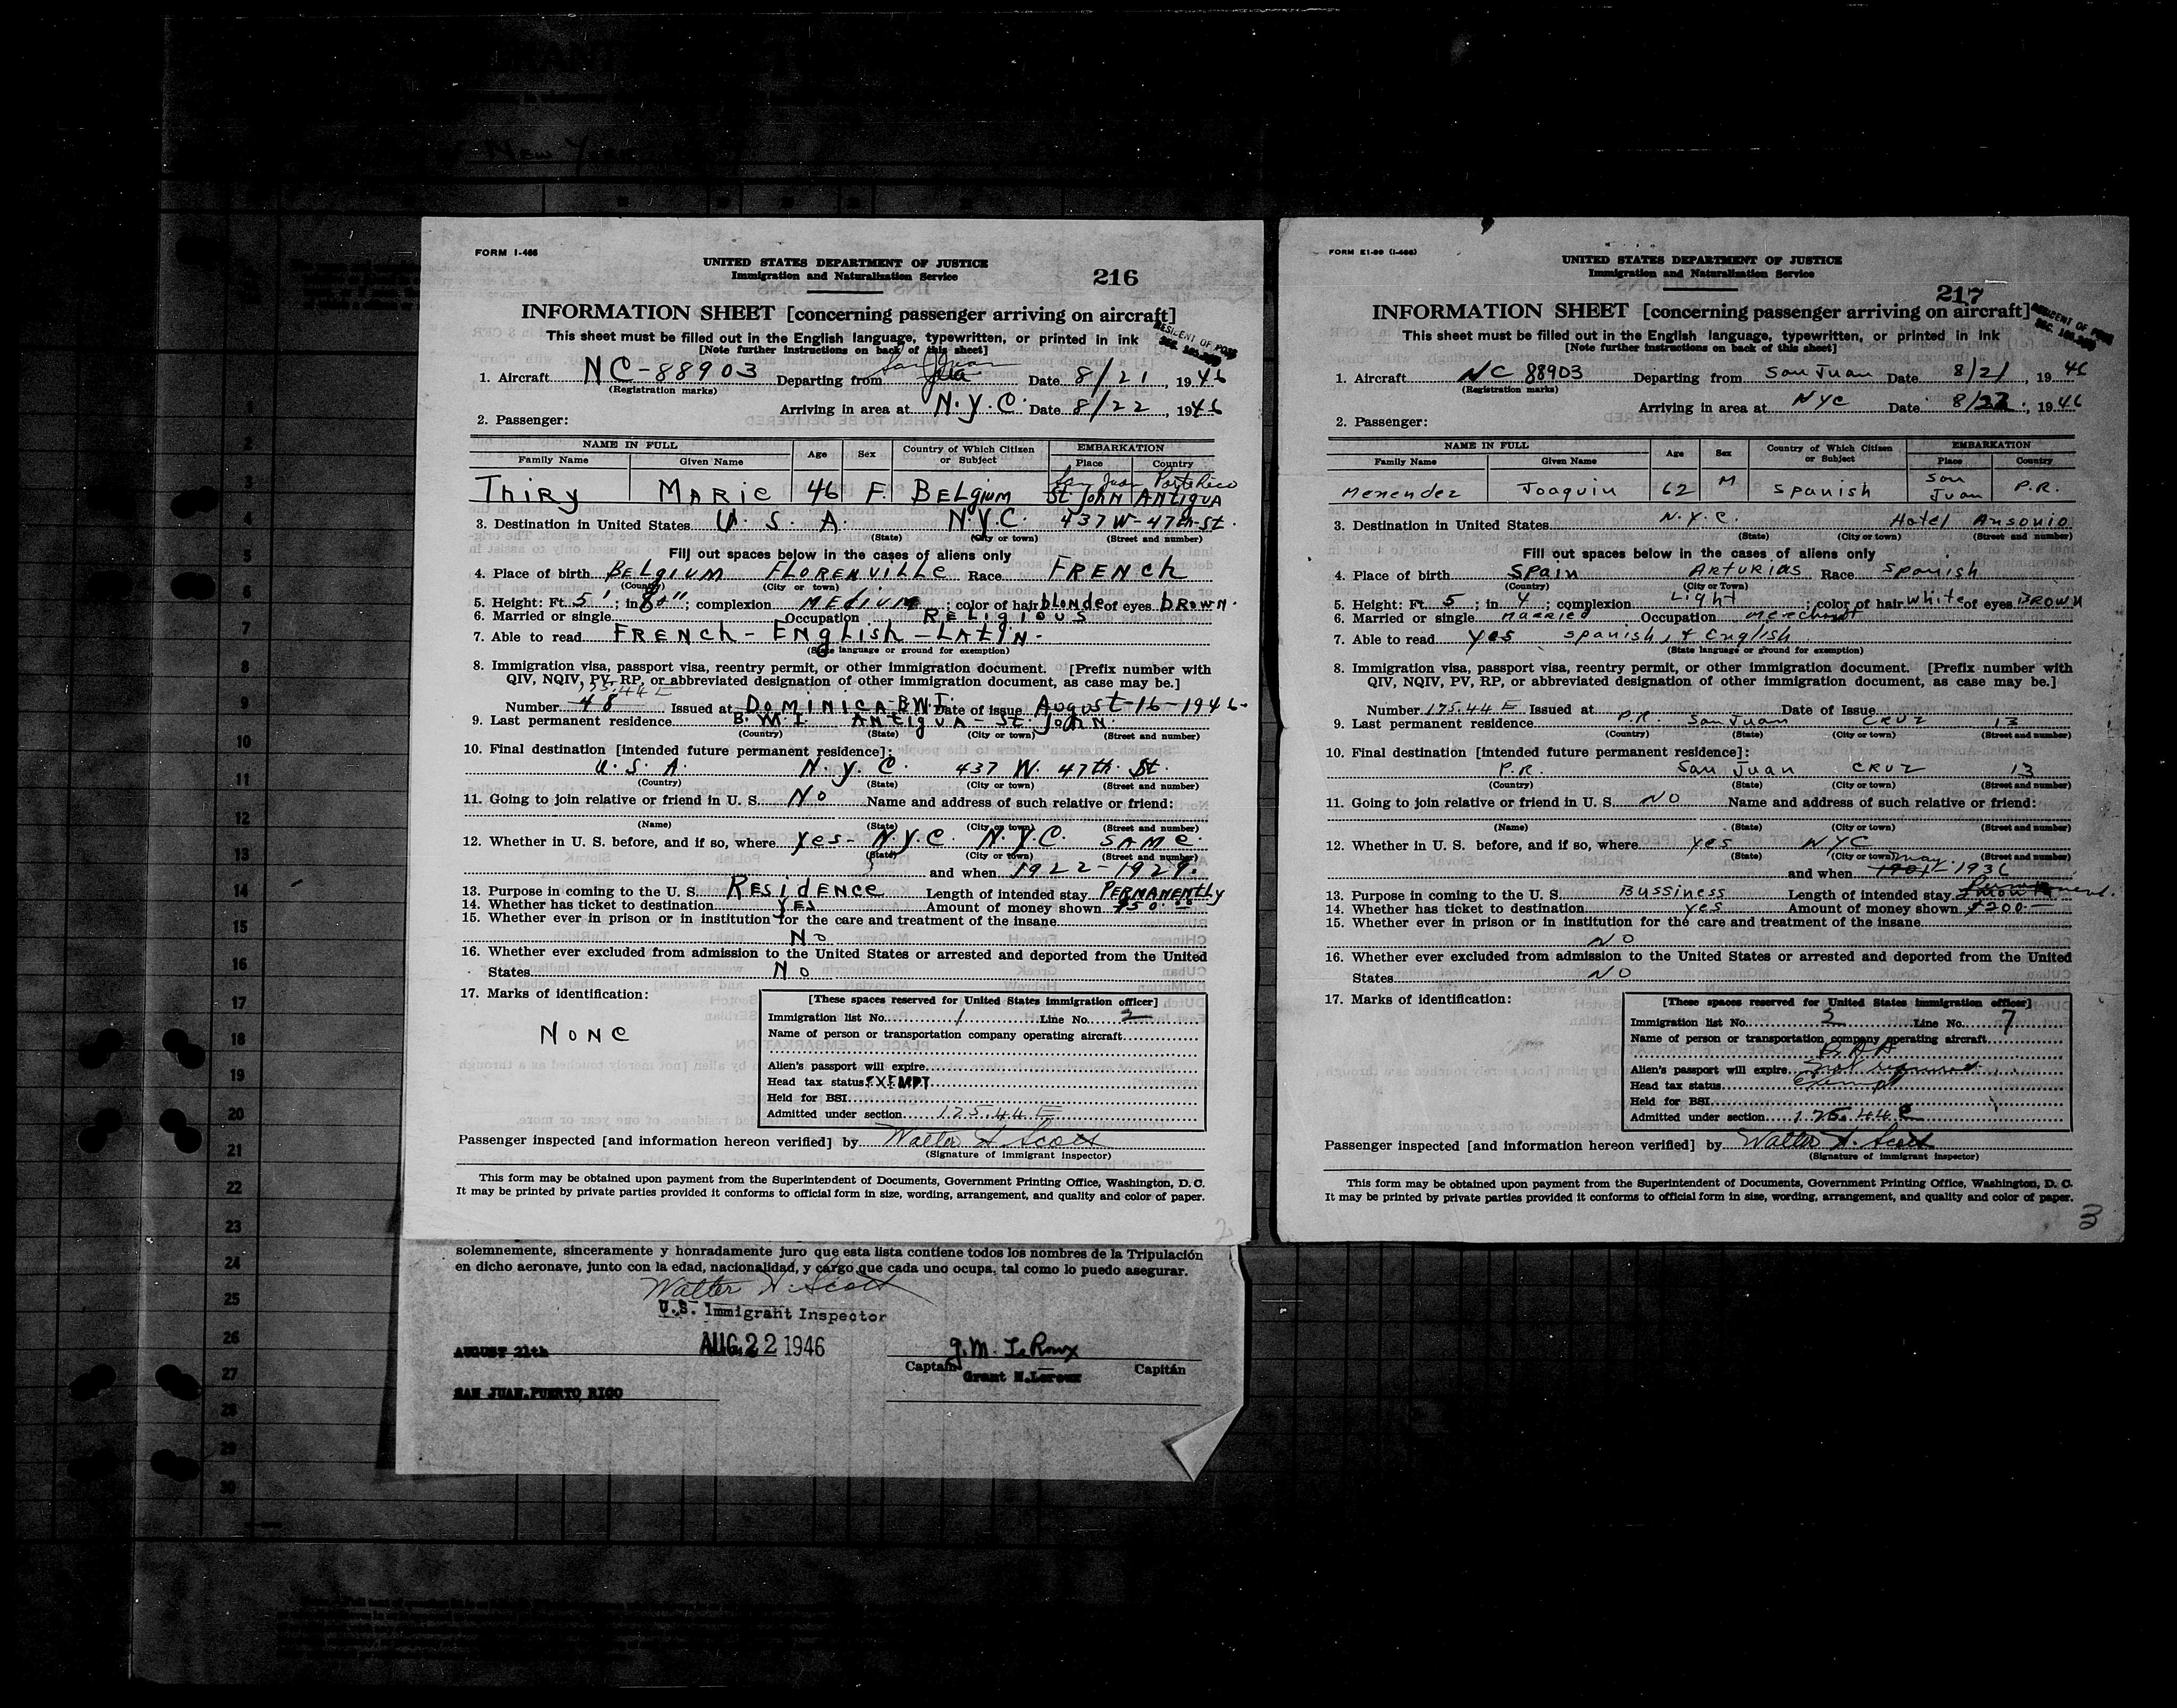 New York
FORM I-466
UNITED STATES DEPARTMENT OF JUSTICE
Immigration and Naturalization Service
216
INFORMATION SHEET [concerning passenger arriving on aircraft]
This sheet must be filled out in the English language, typewritten, or printed in ink
[Note further instructions on back of this sheet]
RESIDENT OF
San Juan
1. Aircraft NC-88903 Departing from Date 8/21, 1946
(Registration marks)
Arriving in area at N.Y.C. Date 8/22, 1946
2. Passenger:
NAME IN FULL Age Sex Country of Which Citizen or Subject EMBARKATION
Family Name Given Name Place Country
San Juan Porto Rico
THIRY MARIE 46 F. BELgium St. JOHN ANTIGUA
3. Destination in United States U. S. A. N.Y.C. 437 W-47th-St.
(State) (City or town) (Street and number)
Fill out spaces below in the cases of aliens only
4. Place of birth BELGIUM FLORENVILLE Race FRENCH
(Country) (City or town)
5. Height: Ft. 5'; in ; complexion MEDIUM; color of hair blonde of eyes bROWN.
6. Married or single Occupation RELIGIOUS
7. Able to read FRENCH - ENGLISH - LATIN-
(State language or ground for exemption)
8. Immigration visa, passport visa, reentry permit, or other immigration document. [Prefix number with
QIV, NQIV, PV, RP, or abbreviated designation of other immigration document, as case may be.]
175.44 E
Number 48 Issued at DOMINICA-BWI Date of issue August-16-1946-
9. Last permanent residence B.W.I. ANTIGUA - St. JOHN.
(Country) (State) (City or town) (Street and number)
10. Final destination [intended future permanent residence]:
U. S. A. N. Y. C. 437 W. 47th. St.
(Country) (State) (City or town) (Street and number)
11. Going to join relative or friend in U. S. No Name and address of such relative or friend:
(Name) (State) (City or town) (Street and number)
12. Whether in U. S. before, and if so, where Yes- N.Y.C N.Y.C. SAME.
(State) (City or town) (Street and number)
and when 1922-1929.
13. Purpose in coming to the U. S. RESIDENCE Length of intended stay PERMANENTLY
14. Whether has ticket to destination YES Amount of money shown $50.00
15. Whether ever in prison or in institution for the care and treatment of the insane
No
16. Whether ever excluded from admission to the United States or arrested and deported from the United
States No
17. Marks of identification:
NONE
[These spaces reserved for United States immigration officer]
Immigration list No. 1 Line No. 2
Name of person or transportation company operating aircraft
Alien's passport will expire
Head tax status EXEMPT
Held for BSI
Admitted under section 175.44 E
Passenger inspected [and information hereon verified] by Walter H. Scott
(Signature of immigrant inspector)
This form may be obtained upon payment from the Superintendent of Documents, Government Printing Office, Washington, D. C.
It may be printed by private parties provided it conforms to official form in size, wording, arrangement, and quality and color of paper.
2
solemnemente, sinceramente y honradamente juro que esta lista contiene todos los nombres de la Tripulación
en dicho aeronave, junto con la edad, nacionalidad, y cargo que cada uno ocupa, tal como lo puedo asegurar.
Walter H. Scott
U.S. Immigrant Inspector
AUGUST 21th AUG 22 1946 G.M. LeRoux
Captain Capitán
Grant M.Leroux
SAN JUAN,PUERTO RICO
FORM E1-99 (I-466)
UNITED STATES DEPARTMENT OF JUSTICE
Immigration and Naturalization Service
217
INFORMATION SHEET [concerning passenger arriving on aircraft]
This sheet must be filled out in the English language, typewritten, or printed in ink
[Note further instructions on back of this sheet]
RESIDENT OF
1. Aircraft NC 88903 Departing from San Juan Date 8/21, 1946
(Registration marks)
Arriving in area at NYC Date 8/22, 1946
2. Passenger:
NAME IN FULL Age Sex Country of Which Citizen or Subject EMBARKATION
Family Name Given Name Place Country
Menendez Joaquin 62 M Spanish San Juan P.R.
3. Destination in United States N.Y.C. Hotel Ansonio
(State) (City or town) (Street and number)
Fill out spaces below in the cases of aliens only
4. Place of birth Spain Arturias Race Spanish
(Country) (City or Town)
5. Height: Ft. 5; in 4; complexion Light; color of hair white of eyes BROWN
6. Married or single Married Occupation merchant
7. Able to read yes spanish, + English
(State language or ground for exemption)
8. Immigration visa, passport visa, reentry permit, or other immigration document. [Prefix number with
QIV, NQIV, PV, RP, or abbreviated designation of other immigration document, as case may be.]
Number 175.44 E Issued at Date of Issue
9. Last permanent residence P.R. San Juan CRUZ 13
(Country) (State) (City or town) (Street and number)
10. Final destination [intended future permanent residence]:
P.R. San Juan CRUZ 13
(Country) (State) (City or town) (Street and number)
11. Going to join relative or friend in U. S. NO Name and address of such relative or friend:
(Name) (State) (City or town) (Street and number)
12. Whether in U. S. before, and if so, where yes NYC
(State) (City or town) (Street and number)
may.
and when 1901-1936
13. Purpose in coming to the U. S. Bussiness Length of intended stay
14. Whether has ticket to destination yes Amount of money shown $200.—
15. Whether ever in prison or in institution for the care and treatment of the insane
NO
16. Whether ever excluded from admission to the United States or arrested and deported from the United
States NO
17. Marks of identification:
[These spaces reserved for United States immigration officer]
Immigration list No. 2 Line No. 7
Name of person or transportation company operating aircraft
PAA
Alien's passport will expire not required
Head tax status Exempt
Held for BSI
Admitted under section 175.44E
Passenger inspected [and information hereon verified] by Walter H. Scott
(Signature of immigrant inspector)
This form may be obtained upon payment from the Superintendent of Documents, Government Printing Office, Washington, D. C.
It may be printed by private parties provided it conforms to official form in size, wording, arrangement, and quality and color of paper.
3
1
2
3
4
5
6
7
8
9
10
11
12
13
14
15
16
17
18
19
20
21
22
23
24
25
26
27
28
29
30